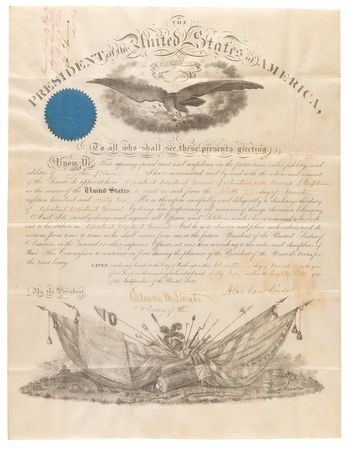 THE
PRESIDENT of the United States of AMERICA,
To all who shall see these presents greeting:
Know Ye, That reposing special trust and confidence in the patriotism, valor, fidelity and
abilities of I have nominated and by and with the advice and consent
of the Senate do appoint him Assistant Adjutant General of Volunteers with the rank of
in the service of the United States: to rank as such from the day of
eighteen hundred and sixty He is therefore carefully and diligently to discharge the duty
of Assistant Adjutant General by doing and performing all manner of things thereunto belonging.
And I do strictly charge and require all Officers and Soldiers under his command to be obedient
to his orders as Assistant Adjutant General And he is to observe and follow such orders and di-
rections from time to time, as he shall receive from me or the future President of the United States of
America or the General or other superior Officers set over him according to the rules and discipline of
War. This Commission to continue in force during the pleasure of the President of the United States for
the time being.
GIVEN under my hand at the City of Washington this day of in the year
of our Lord one thousand eight hundred and sixty and in the eighty year
of the Independence of the United States.
By the President,
Edwin M. Stanton
Secretary of War
Abraham Lincoln